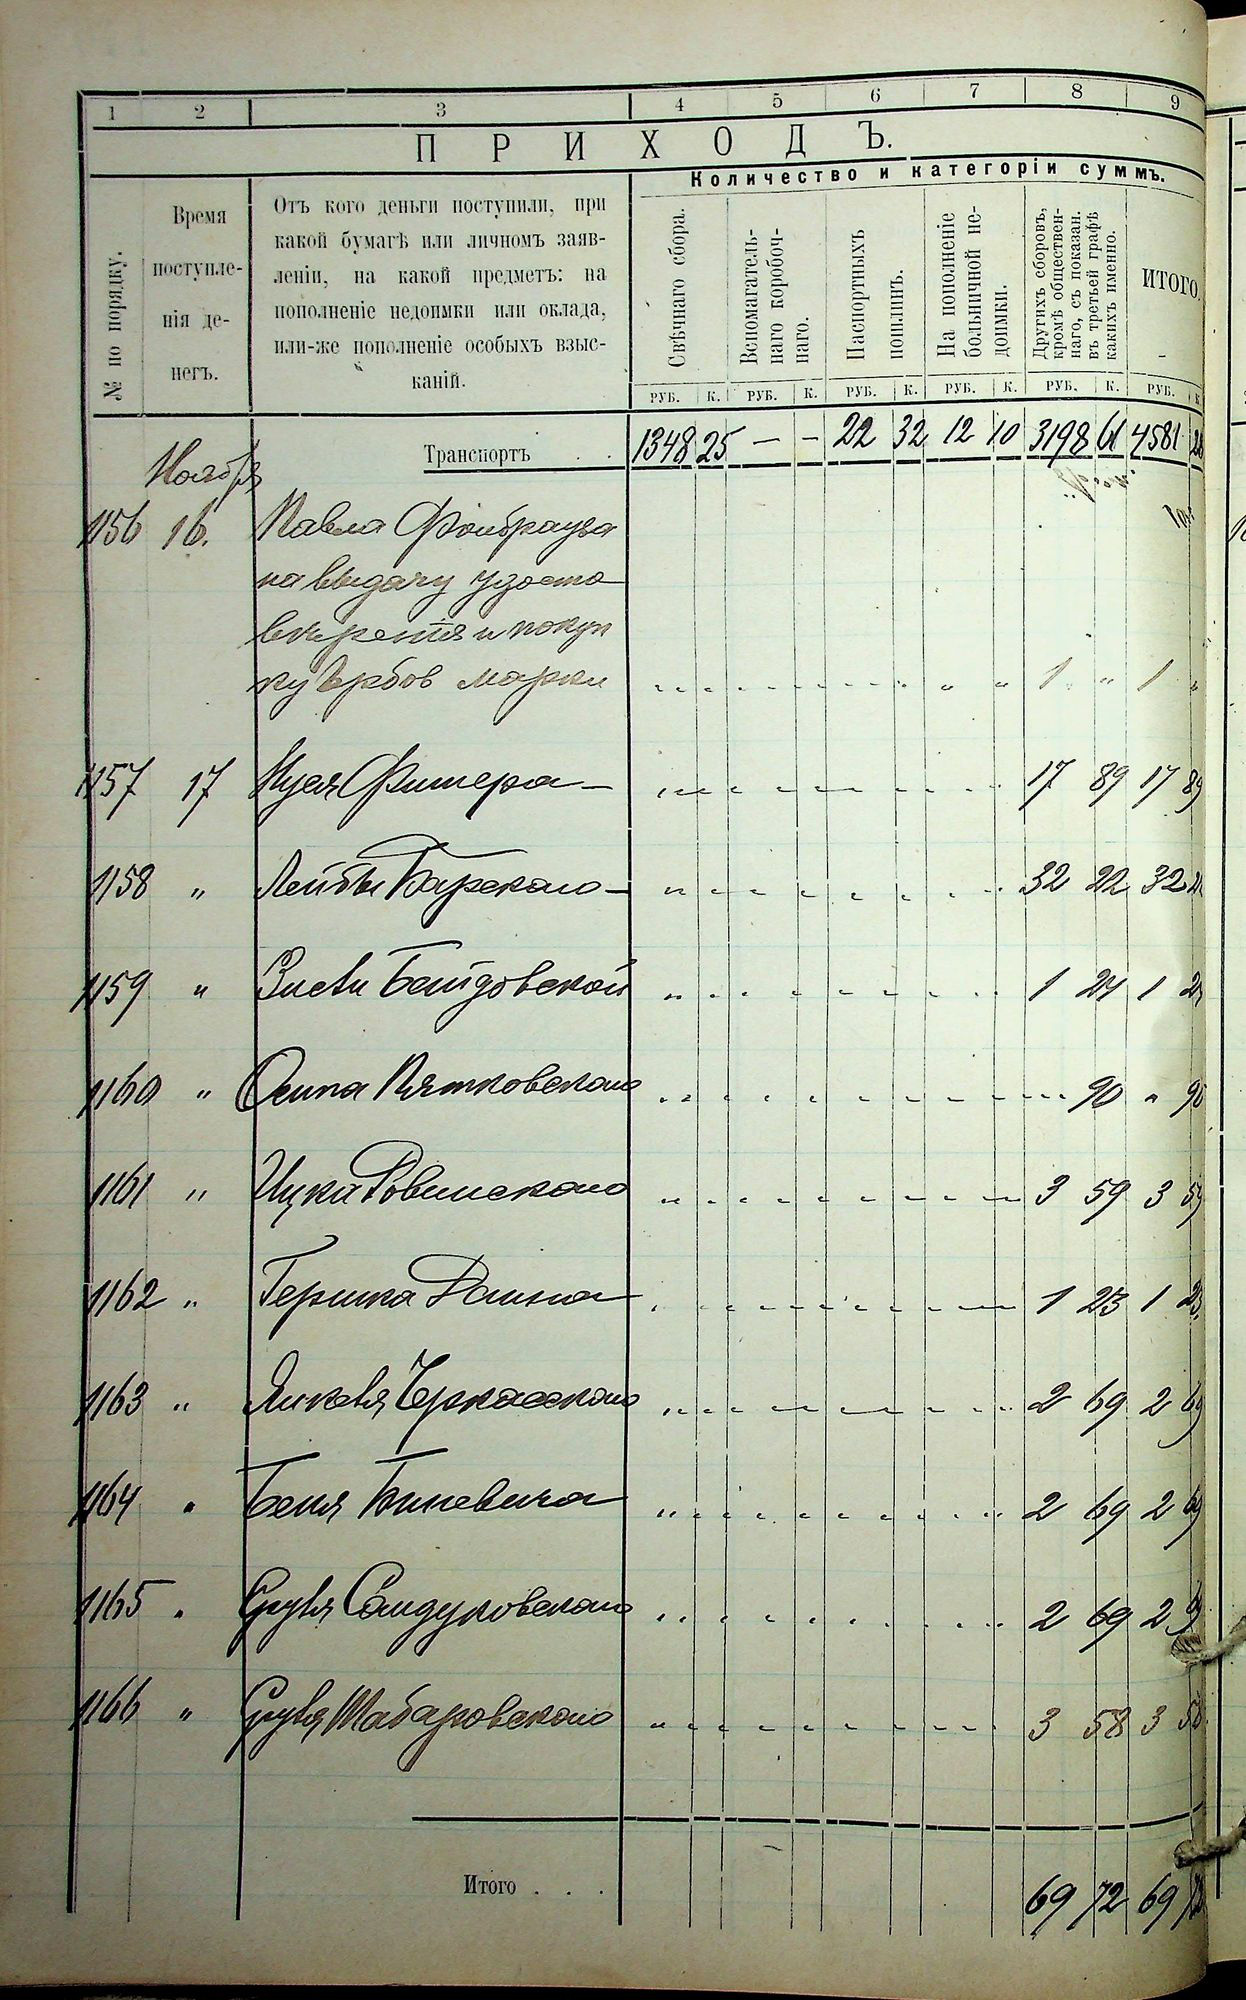 1 2 3 4 5 6 7 8 9
ПРИХОДЪ.
Количество и категоріи суммъ.
№ по порядку.
Время
поступле-
нія де-
негъ.
Отъ кого деньги поступили, при
какой бумагѣ или личномъ заяв-
леніи, на какой предметъ: на
пополненіе недоимки или оклада,
или-же пополненіе особыхъ взыс-
каній.
Свѣчнаго сбора.
Вспомагатель-
наго коробоч-
наго.
Паспортныхъ
пошлинъ.
На пополненіе
больничной не-
доимки.
Другихъ сборовъ,
кромѣ обществен-
наго, съ показан.
въ третьей графѣ
какихъ именно.
ИТОГО.
РУБ. К. РУБ. К. РУБ. К. РУБ. К. РУБ. К. РУБ. К.
Транспортъ . . 1348 25 — — 22 32 12 10 3198 61 4581
Ноября
1156 16. Павла
на выдачу удосто
веренія и покуп
ку гербов марки 1 " 1 "
1157 17 Фишера — 17 89 17 89
1158 " Лейбы Барскаго — 32 22 32
1159 " Бейдовской 1 27 1 27
1160 " Осипа Пятковскаго 90 " 90
1161 " Ицка Ровинскаго 3 59 3 59
1162 " Гершка 1 23 1 23
1163 " Янкеля Черкасскаго 2 69 2 69
1164 " Беня Биневича 2 69 2 69
1165 " Сруля 2 69 2
1166 " Сруля Шабаровскаго 3 58 3 58
Итого . . . 69 72 69 72